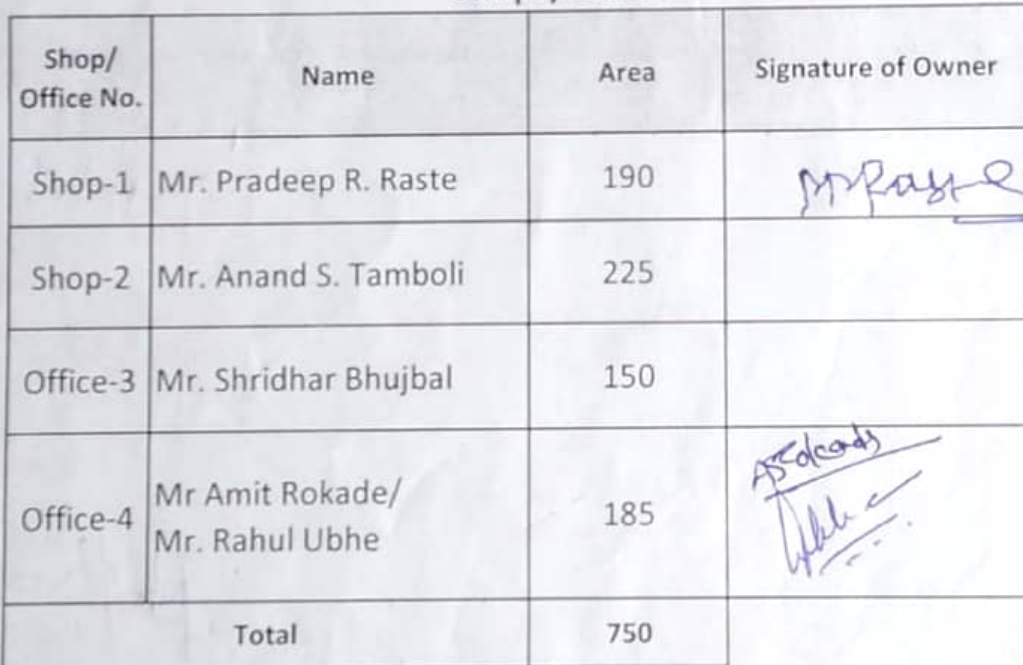 Shop/
Office No.
Name
Area
Signature of Owner
Shop-1 Mr. Pradeep R. Raste 190
Shop-2 Mr. Anand S. Tamboli 225
Office-3 Mr. Shridhar Bhujbal 150
Office-4
Mr Amit Rokade/
Mr. Rahul Ubhe
185
Total 750